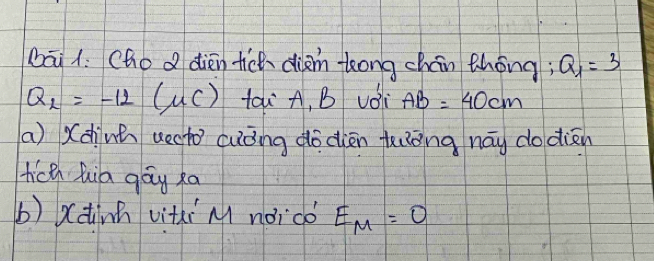 Bài 1: Cho 2 điện tích điểm trong chân không; Q₁ = 3
Q₂ = -12 (μC) tại A, B với AB = 40cm
a) Xđịnh vectơ cường độ điện trường này do điện
tích kia gây ra
b) Xđịnh vị trí M nơi có E_M = 0